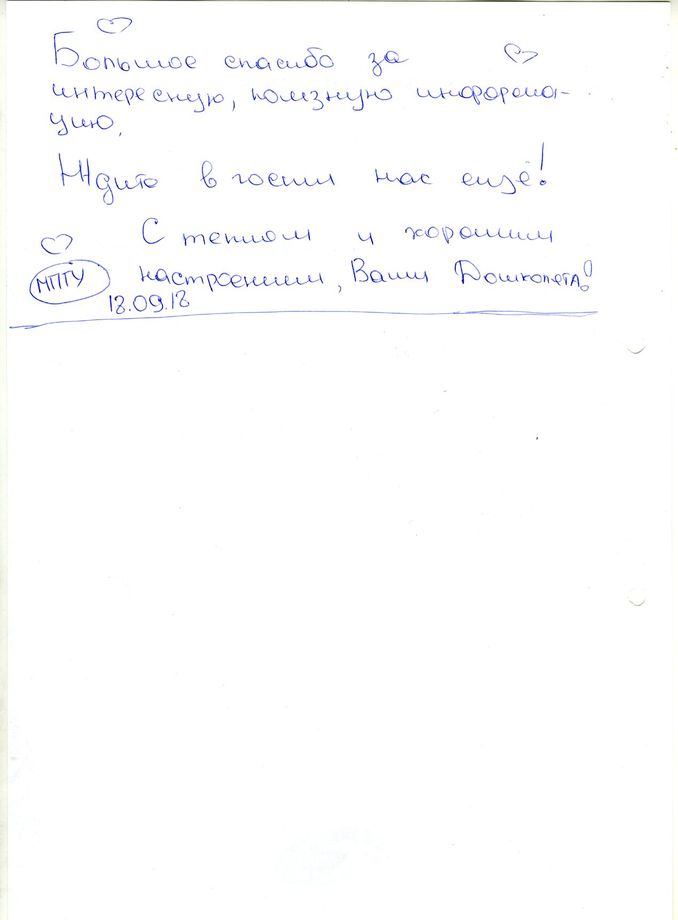 Большое спасибо за
интересную, полезную информа-
цию.
Ждите в гости нас ещё!
С теплом и хорошим
настроением, Ваши Дошколята!
МПГУ
18.09.18